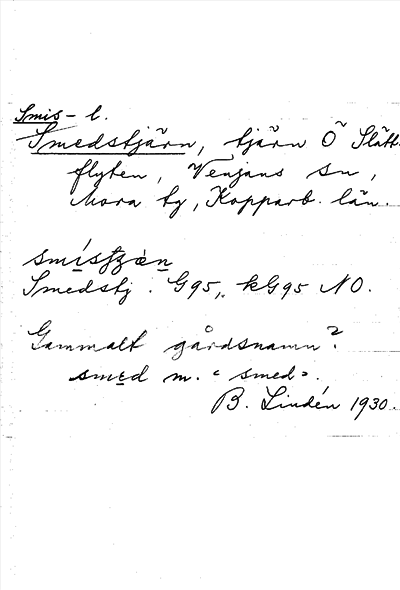 Smis- l.
Smedstjärn, tjärn Ö Slätt-
flyten, Venjans sn,
Mora ty, Kopparb. län.
smi̲stjä̀n
Smedstj. G95, kG95 NO.
Gammalt gårdsnamn?
sme̲d m. "smed".
B. Lindén 1930.